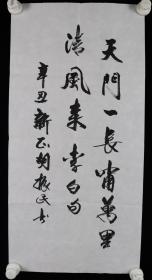 天門一長嘯萬里
清風來李白句
辛丑新正胡振民书